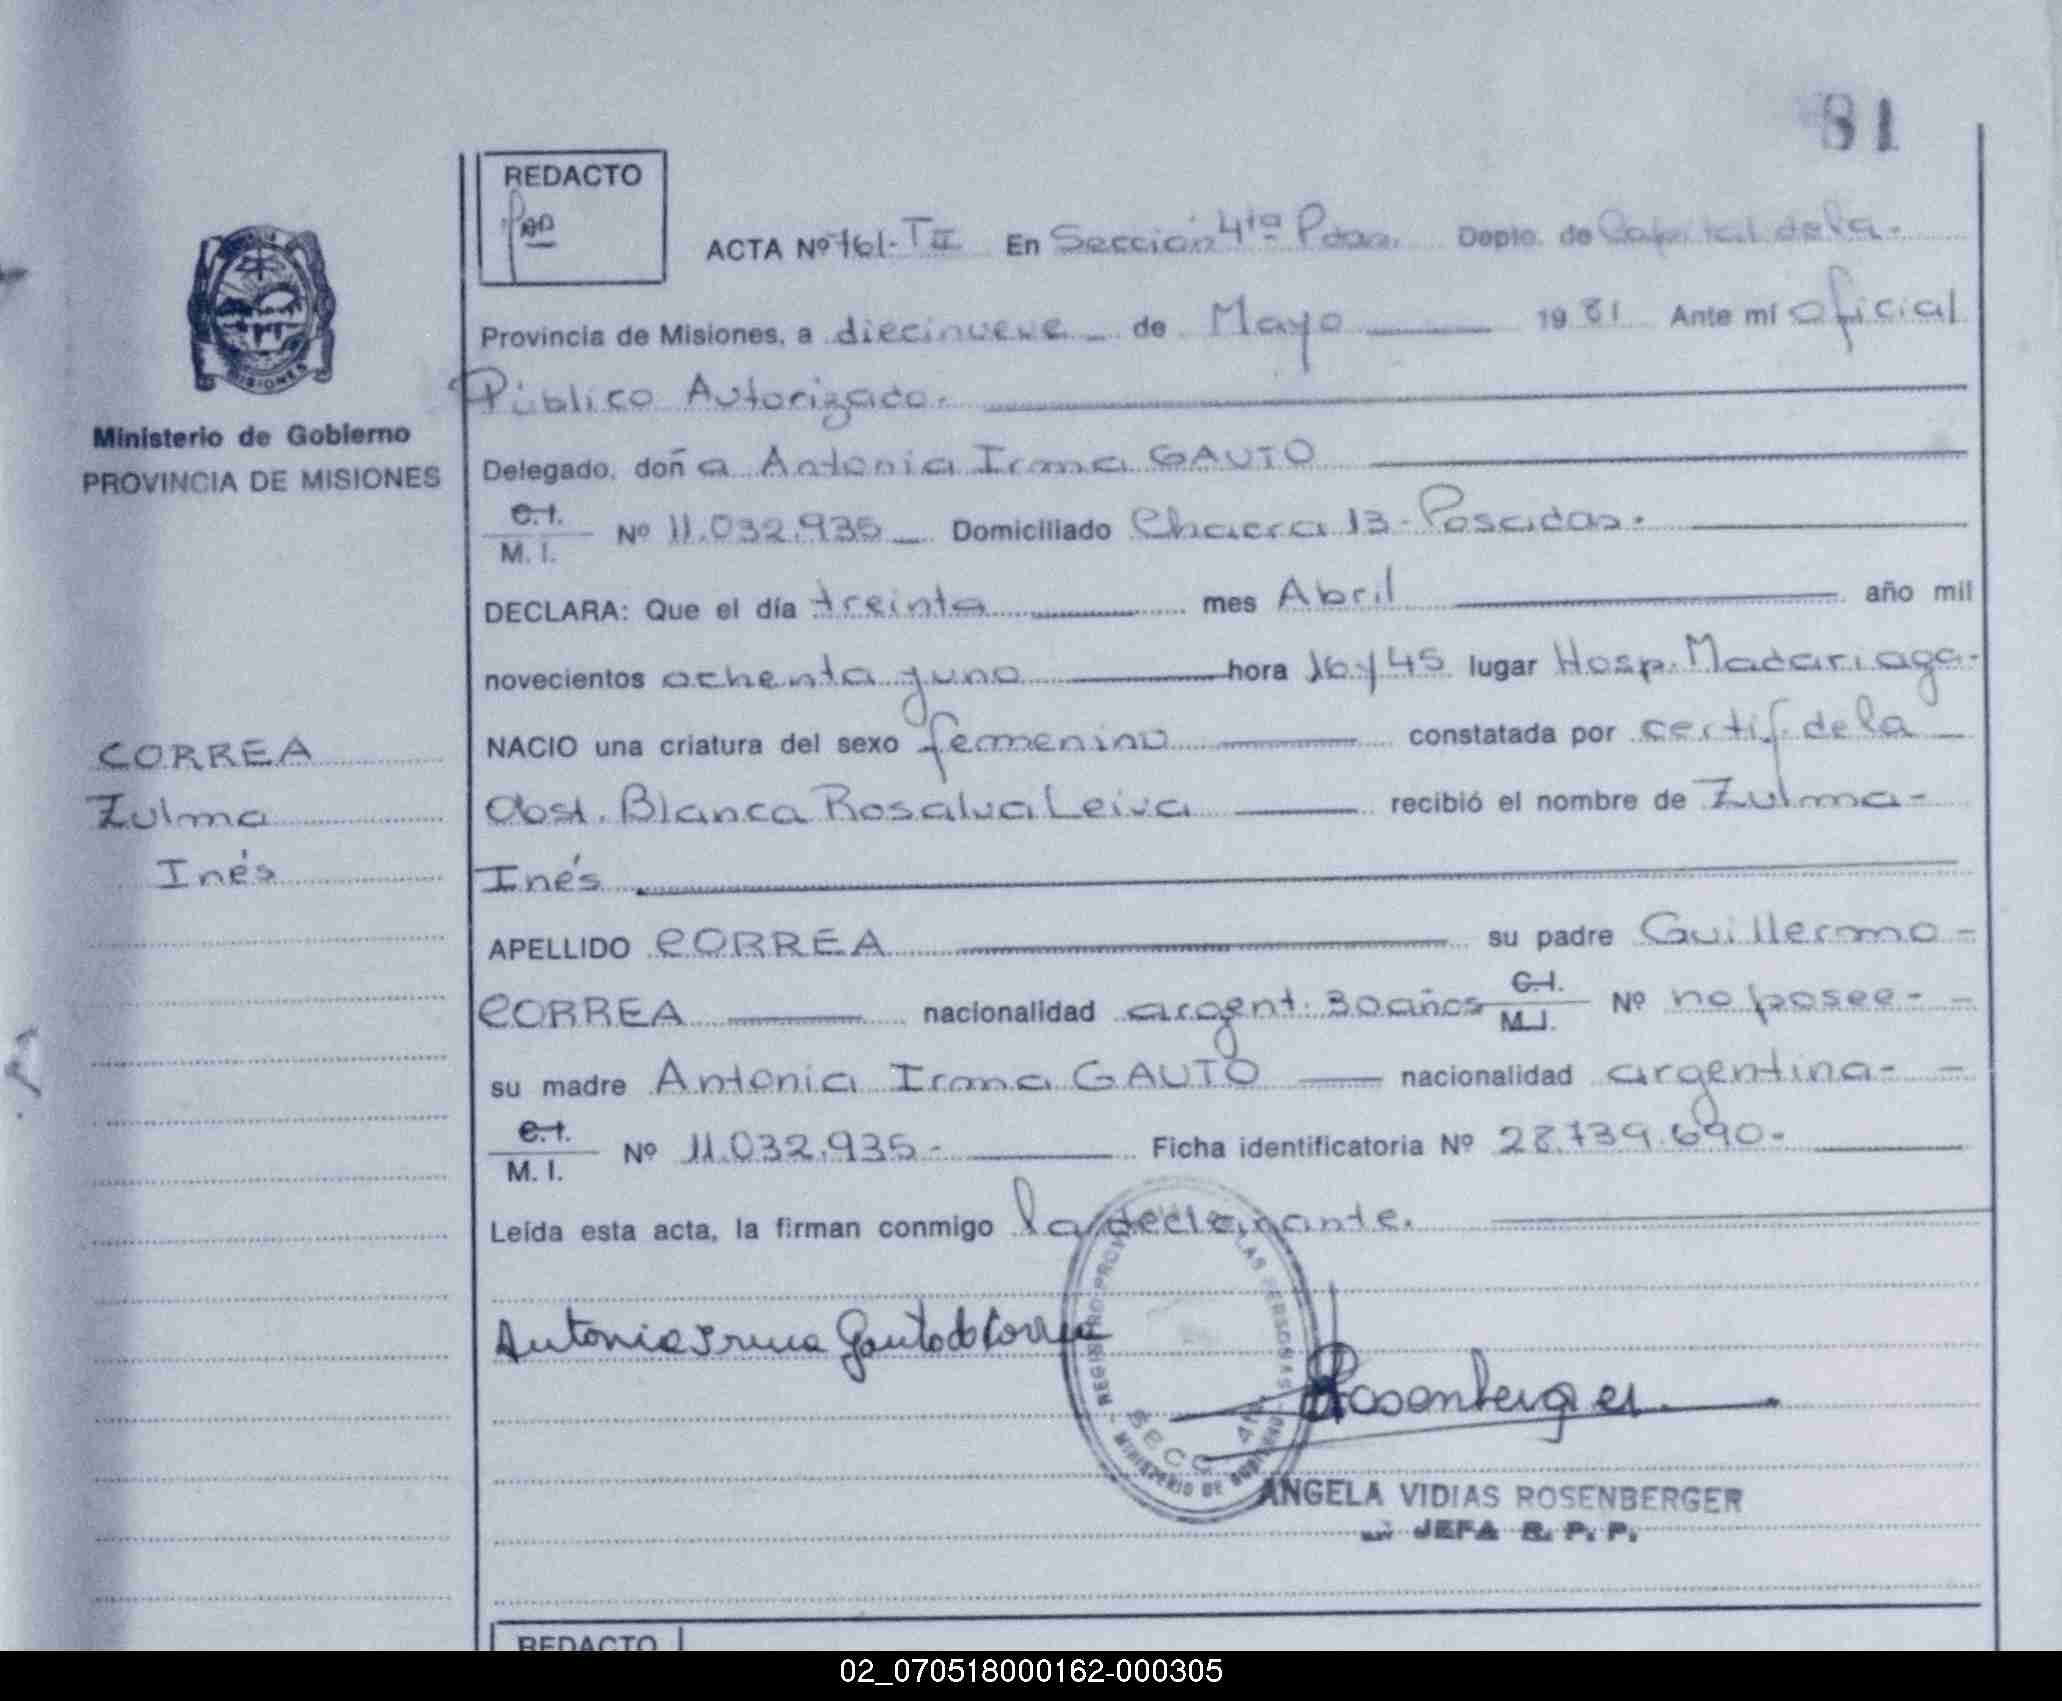 81
REDACTO
ACTA Nº 761-T II En Sección 4ta Pdas. Depto. de Capital de la-
Provincia de Misiones, a diecinueve de Mayo 1981 Ante mí oficial
Público Autorizado.
Ministerio de Gobierno
PROVINCIA DE MISIONES
Delegado, doña Antonia Irma GAUTO
C.I. M. I. Nº 11.032.935 Domiciliado Chacra 13 - Posadas.
DECLARA: Que el día treinta mes Abril año mil
novecientos ochenta y uno hora 16 y 45 lugar Hosp. Madariaga-
NACIO una criatura del sexo femenino constatada por certif. de la
Obst. Blanca Rosalva Leiva recibió el nombre de Zulma-
Inés
CORREA
Zulma
Inés
APELLIDO CORREA su padre Guillermo-
CORREA nacionalidad argent. 30 años C.I. M.I. Nº no posee-
su madre Antonia Irma GAUTO nacionalidad argentina-
C.I. M. I. Nº 11.032.935- Ficha identificatoria Nº 28.739.690-
Leída esta acta, la firman conmigo la declarante.
Antonia Irma Gauto de Correa
Rosenberger
REGISTRO PROV. DE LAS PERSONAS
SECC 4ta
MINISTERIO DE GOBIERNO
ANGELA VIDIAS ROSENBERGER
JEFA R. P. P.
REDACTO
02_070518000162-000305